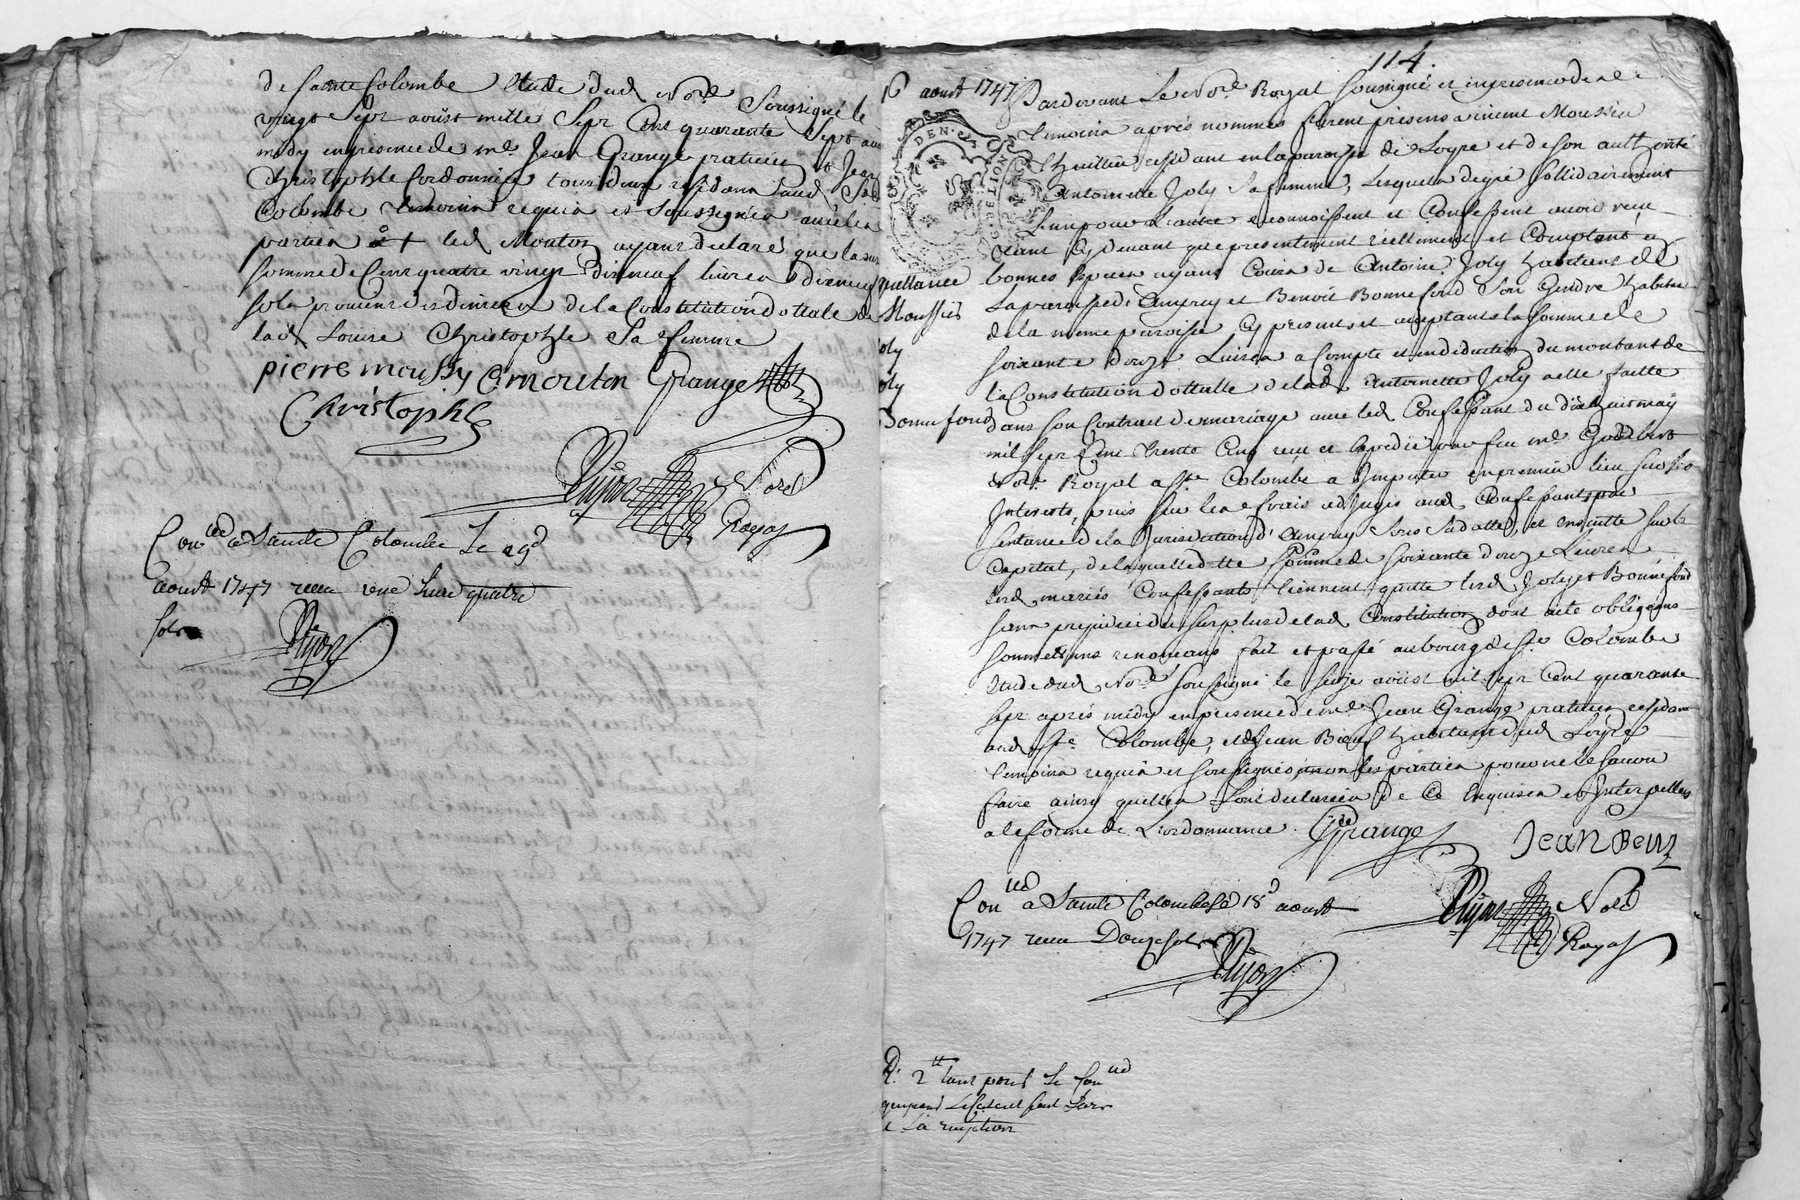 de Sainte Colombe Etude dud No.re Soussigné le
vingt Sept aoust mille Sept Cent quarante Sept
midy en presence de me. Jean Grange praticien et Jean
Christophle Cordonnier tous deux residans aud. Ste
Colombe temoins requis et Soussignés avec les
parties led. Mouton ayant declaré que la
somme de Cent quatre vingt dixneuf livres
sols provient des deniers de la Constitution dottale de
lad. Louise Christophle Sa femme
pierre moussy C mouton Grange
Christophle
Dijon No.re
Royal
Con.lé a Sainte Colombe Le 29e
aoust 1747 receu une livre quatre
sols
Dijon
114.
16 aoust 1747
Pardevant Le No.re Royal soussigné et en presence de
temoins aprés nommés furent presens
residant en la paroisse de et de son authorité
Antoinette Joly Sa femme, lesquels de gré sollidairement
L'un pour L'autre reconnoissent et Confessent avoir receu
tant Cy devant que presentement reellement et Comptant en
bonnes Especes ayant Cours de Antoine Joly habitant de
la paroisse d'Amprey et Benoit Bonnefond Son Gendre habitant
de la meme paroisse Cy presents et acceptants la somme de
soixante douze Livres a Compte et en deduction du montant de
la Constitution dottalle de lad. Antoinette Joly a elle faitte
dans son Contract de mariage avec led. Confessant du dix huit may
mil sept Cent trente Cinq receu et expedié par feu me.
No.re Royal a Ste Colombe a Imputer en premier lieu sur les
Interests, puis sur les frais adjugés aud. Confessant par
sentence de la Jurisdiction d'Amprey Sous Sa datte, et ensuitte sur le
Capital, de laquelle ditte Somme de soixante douze Livres
lesd. mariés Confessants tiennent quitte lesd. Joly et Bonnefond
sans prejudice du surplus de lad. Constitution dont acte obligeans
soumettans renoncans fait et passé au bourg de Ste Colombe
Etude dud. No.re soussigné le seize aoust mil sept Cent quarante
sept aprés midy en presence de me. Jean Grange praticien residant
aud. Ste Colombe, et de Jean habitant dud.
temoins requis et soussignés non les parties pour ne le sçavoir
faire ainsy quelles L'ont declaré de Ce Enquises et Interpellées
a la forme de L'ordonnance. Grange
Quittance
Joly
Joly
Bonnefond
Dijon No.re
Royal
Con.lé a Sainte Colombe le 18e aoust
1747 receu Douze sols
Dijon
R. 2tt tant pour le Con.lé